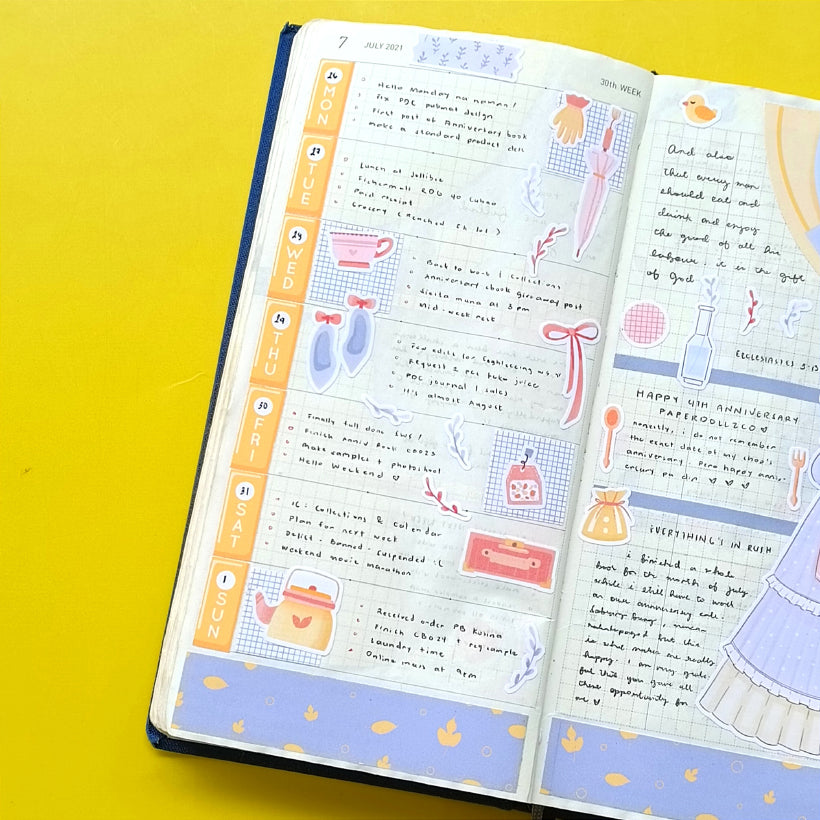 7 JULY 2021
30th WEEK
26
MON
Hello Monday na naman!
Fix POC podmat design
First post of Anniversary book
make a standard product
27
TUE
Lunch at Jollibee
Fishermall to Cubao
Paid receipt
Grocery (Reached 5k lol)
WED
Back to work | Collections
Anniversary ebook giveaway post
Siesta muna at 3 pm
Mid-week rest
THU
Few edits for
Request 2 pcs juice
POC journal | sales
It's almost August
30
FRI
Finally full done
Finish Anniv Book CB023
Make samples + photoshoot
Hello Weekend
31
SAT
IG: Collections & Calendar
Plan for next week
Delist - Banned - Suspended :(
Weekend movie marathon
1
SUN
Received order PB Kusina
Finish CB024 + reg sample
Laundry time
Online mass at 9pm
And also
that every man
should eat and
drink and enjoy
the good of all his
labour, it is the gift
of God
ECCLESIASTES 3:13
HAPPY 4TH ANNIVERSARY
PAPERDOLLZCO
honestly, i do not remember
the exact date of my shop's
anniversary. Pero happy anni-
versary pa din.
EVERYTHING'S IN RUSH
i finished a whole
book for the month of july
while i still have to work
on our anniversary
but this
is what makes me really
happy. I am very grate-
ful that you gave all
these opportunity for
me